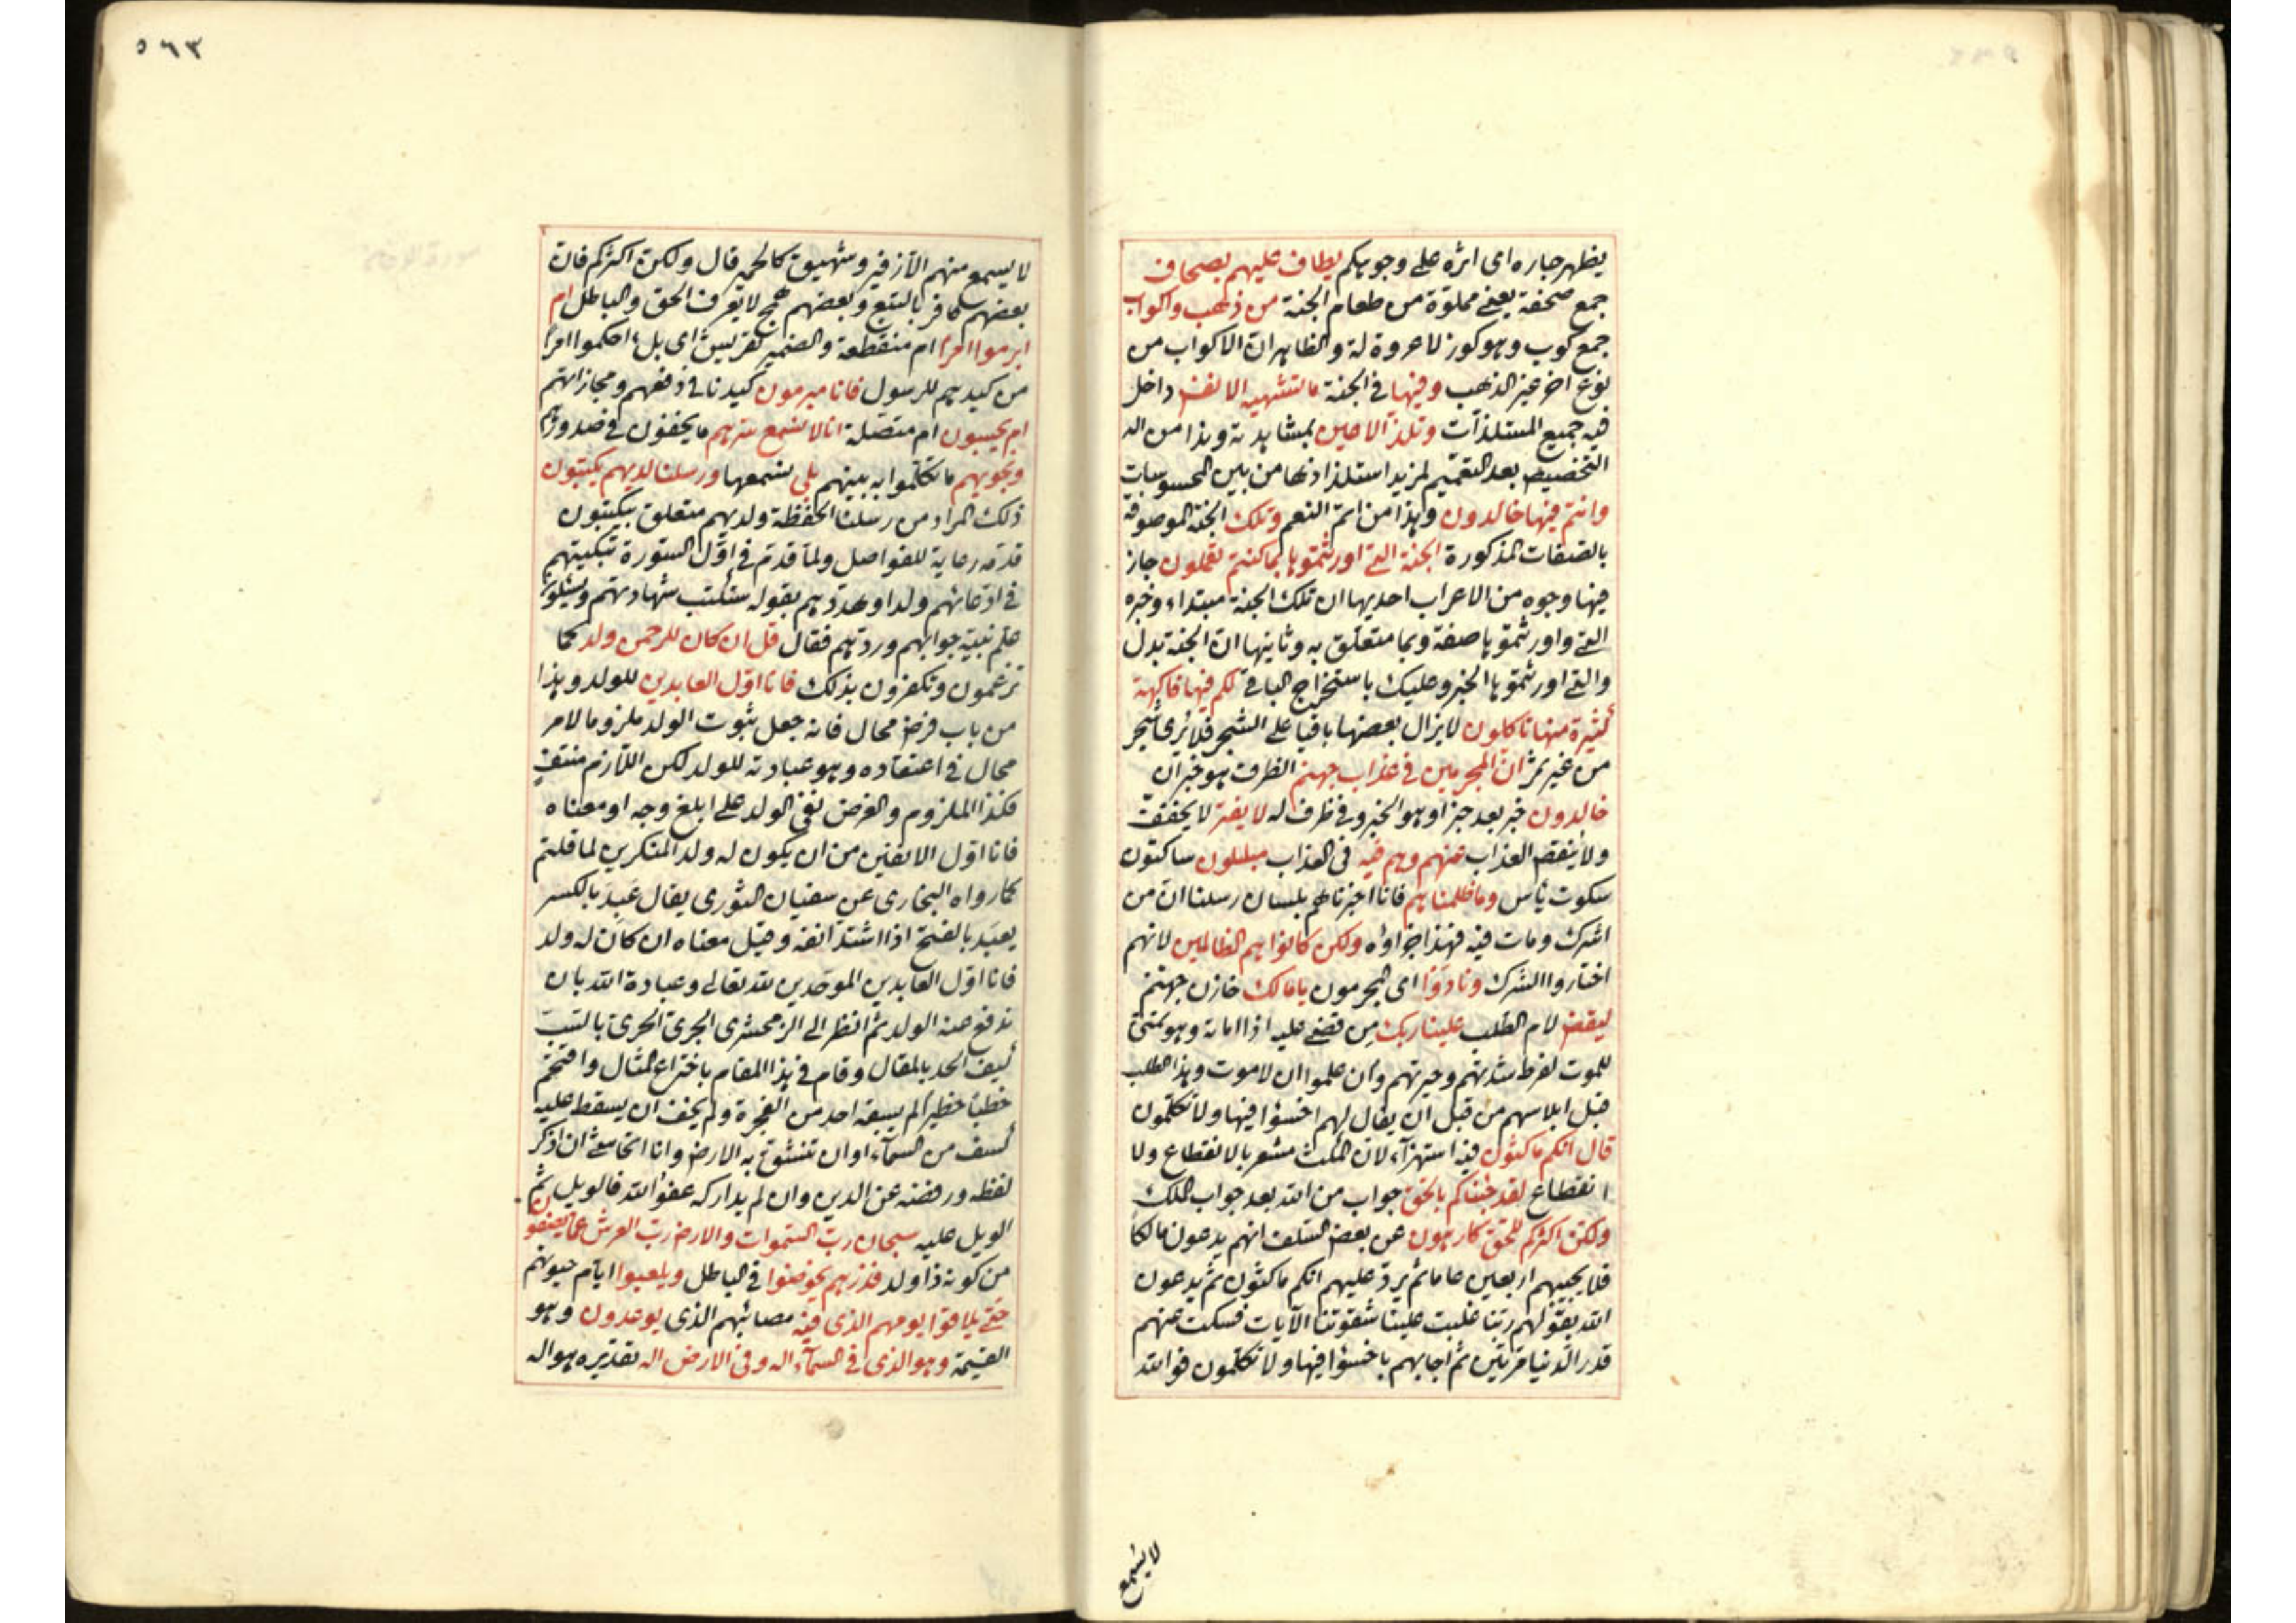 يظهر حباره اى اثره على وجوهكم يطاف عليهم بصحاف
جمع صحفة يعنى مملوّة من طعام الجنة من ذهب واكواب
جمع كوب وهو كوز لا عروة له والظاهر ان الاكواب من
نوع اخر غير الذهب وفيها فى الجنة ما تشتهيه الانفس داخل
فيه جميع المستلذّات وتلذّ الاعين بمشاهدته وهذا من
التخصيص بعد التعميم لمزيد استلذاذها من بين المحسوسات
وانتم فيها خالدون وهذا من اتمّ النعم وتلك الجنة الموصوفة
بالصفات المذكورة الجنة التى اورثتموها بما كنتم تعملون جاز
فيها وجوه من الاعراب احديها ان تلك الجنة مبتداء وخبره
التى واورثتموها صفة وبما متعلّق به وثانيها انّ الجنة بدل
والتى اورثتموها الخبر وعليك باستخراج الباقى لكم فيها فاكهة
كثيرة منها تاكلون لا يزال بعضها باقيا على الشجر فلا ترى شجر
من غير ثمر انّ المجرمين فى عذاب جهنم الظرف هو خبر ان
خالدون خبر بعد خبر او هو الخبر وفى ظرف له لا يفتر لا يخفف
ولا ينقص العذاب عنهم وهم فيه فى العذاب مبلسون ساكتون
سكوت يأس وما ظلمناهم فانا اخبرناهم بلسان رسلنا ان من
اشرك ومات فيه فهذا جزاؤه ولكن كانوا هم الظالمين لانهم
اختاروا الشرك ونادوا اى المجرمون يا مالك خازن جهنم
ليقض لام الطلب علينا ربك من قضى عليه اذا اماته وهو تمنىّ
للموت لفرط شدتهم وحيرتهم وان علموا ان لا موت وهذا الطلب
قبل ابلاسهم من قبل ان يقال لهم اخسؤا فيها ولا تكلمون
قال انكم ماكثون فيه استهزآء لان المكث مشعر بالانقطاع ولا
انقطاع لقد جئناكم بالحق جواب من الله بعد جواب الملك
ولكن اكثركم للحق كارهون عن بعض السلف انهم يدعون مالكا
فلا يجيبهم اربعين عاما ثم يردّ عليهم انكم ماكثون ثم يدعون
الله بقولهم ربّنا غلبت علينا شقوتنا الآيات فسكت عنهم
قدر الدنيا مرّتين ثم اجابهم باخسؤا فيها ولا تكلمون فوالله
لا يسمع
٥٦٣
لا يسمع منهم الّا زفير وشهيق كالحمير قال ولكن اكثركم فان
بعضهم كافر بالتبع وبعضهم همج لا يعرف الحق والباطل ام
ابرموا امرا ام منقطعة والضمير لقريش اى بل احكموا امرا
من كيدهم للرسول فانا مبرمون كيدنا فى دفعهم ومجازاتهم
ام يحسبون ام متصلة انا لا نسمع سرّهم ما يخفون فى صدورهم
ونجويهم ما تكلموا به بينهم بلى نسمعها ورسلنا لديهم يكتبون
ذلك المراد من رسلنا الحفظة ولديهم متعلق بيكتبون
قدّمه رعاية للفواصل ولما قدّم فى اوّل السورة تبكيتهم
فى ادّعائهم ولدا وهددهم بقوله ستكتب شهادتهم ويسئلون
علم نبيّه جوابهم وردّهم فقال قل ان كان للرحمن ولد كما
تزعمون وتكفرون بذلك فانا اوّل العابدين للولد وهذا
من باب فرض محال فانه جعل ثبوت الولد ملزوما لامر
محال فى اعتقاده وهو عبادته للولد لكن اللازم منتف
فكذا الملزوم والغرض نفى الولد على ابلغ وجه او معناه
فانا اوّل الانفين من ان يكون له ولد المنكرين لما قلتم
كما رواه البخارى عن سفيان الثورى يقال عبد بالكسر
يعبد بالفتح اذا اشتد انفه وقيل معناه ان كان له ولد
فانا اوّل العابدين الموحّدين لله تعالى وعبادة الله بان
ندفع عنه الولد ثم انظر الى الزمخشرى الجرىّ الحرىّ بالسبّ
كيف الحد بالمقال وقام فى هذا المقام باختراع المثال واقتحم
خطبا خطيرا لم يسبقه احد من الفجرة ولم يخف ان يسقط عليه
كسف من السمآء او ان تنشقّ به الارض وانا اتحاشى ان اذكر
لفظه ورفضه عن الدين وان لم يداركه عفو الله فالويل ثم
الويل عليه سبحان ربّ السموات والارض ربّ العرش عما يصفون
من كونه ذا ولد فذرهم يخوضوا فى الباطل ويلعبوا ايّام حيوتهم
حتى يلاقوا يومهم الذى فيه مصائبهم الذى يوعدون وهو
القيمة وهو الذى فى السمآء اله وفى الارض اله تقديره هو اله